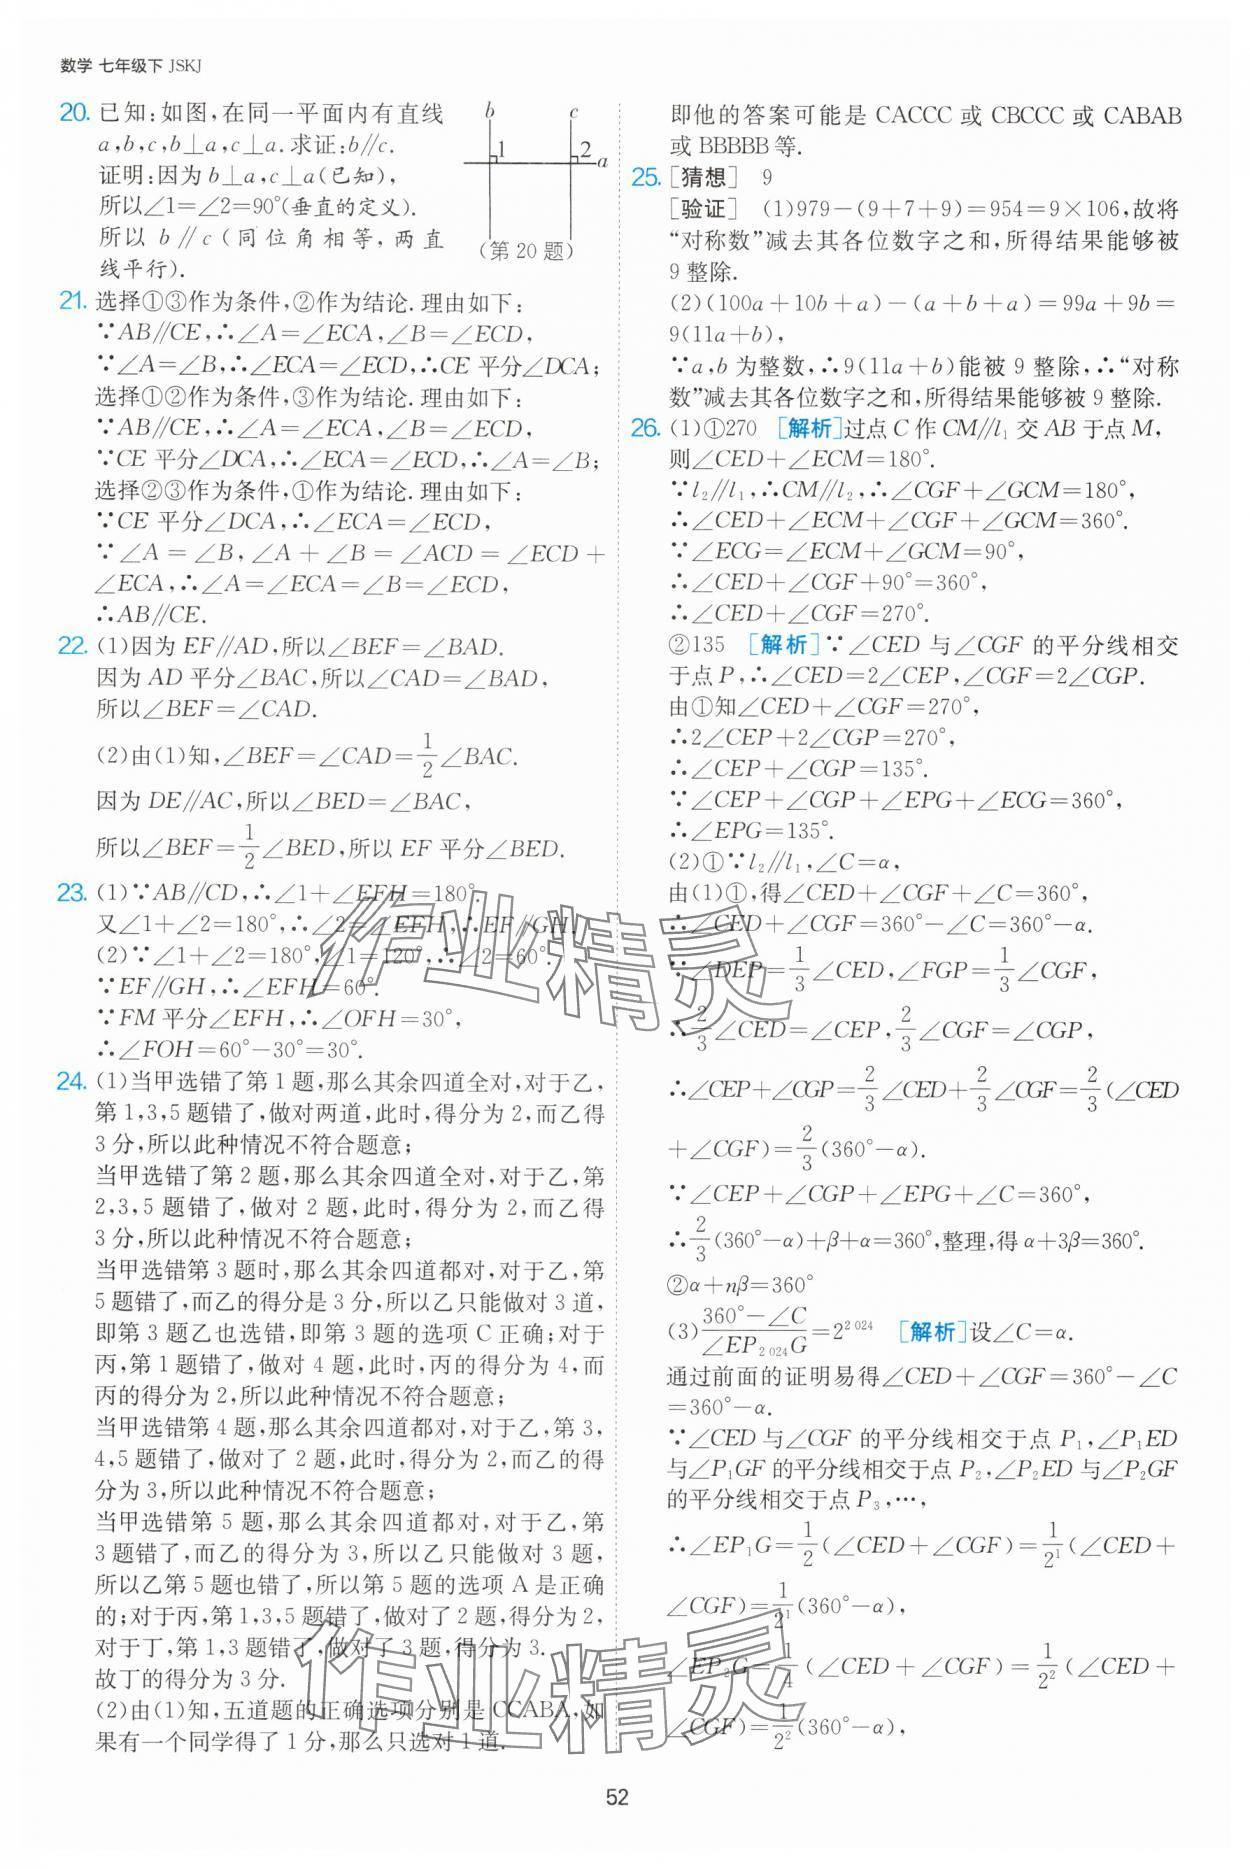 数学 七年级下 JSKJ
20. 已知:如图,在同一平面内有直线
a,b,c,b⊥a,c⊥a.求证:b∥c.
证明:因为b⊥a,c⊥a(已知),
所以∠1=∠2=90°(垂直的定义).
所以 b∥c(同位角相等,两直
线平行).
b c
1 2 a
(第20题)
21. 选择①③作为条件,②作为结论.理由如下:
∵AB∥CE,∴∠A=∠ECA,∠B=∠ECD,
∵∠A=∠B,∴∠ECA=∠ECD,∴CE 平分∠DCA;
选择①②作为条件,③作为结论.理由如下:
∵AB∥CE,∴∠A=∠ECA,∠B=∠ECD,
∵CE 平分∠DCA,∴∠ECA=∠ECD,∴∠A=∠B;
选择②③作为条件,①作为结论.理由如下:
∵CE 平分∠DCA,∴∠ECA=∠ECD,
∵∠A=∠B,∠A+∠B=∠ACD=∠ECD+
∠ECA,∴∠A=∠ECA=∠B=∠ECD,
∴AB∥CE.
22. (1)因为 EF∥AD,所以∠BEF=∠BAD.
因为 AD 平分∠BAC,所以∠CAD=∠BAD,
所以∠BEF=∠CAD.
(2)由(1)知,∠BEF=∠CAD=1/2∠BAC.
因为 DE∥AC,所以∠BED=∠BAC,
所以∠BEF=1/2∠BED,所以 EF 平分∠BED.
23. (1)∵AB∥CD,∴∠1+∠EFH=180°.
又∠1+∠2=180°,∴∠2=∠EFH,∴EF∥GH.
(2)∵∠1+∠2=180°,∠1=120°,∴∠2=60°.
∵EF∥GH,∴∠EFH=60°.
∵FM 平分∠EFH,∴∠OFH=30°,
∴∠FOH=60°−30°=30°.
24. (1)当甲选错了第1题,那么其余四道全对,对于乙,
第1,3,5题错了,做对两道,此时,得分为2,而乙得
3分,所以此种情况不符合题意;
当甲选错了第2题,那么其余四道全对,对于乙,第
2,3,5题错了,做对2题,此时,得分为2,而乙得
3分,所以此种情况不符合题意;
当甲选错第3题时,那么其余四道都对,对于乙,第
5题错了,而乙的得分是3分,所以乙只能做对3道,
即第3题乙也选错,即第3题的选项C正确;对于
丙,第1题错了,做对4题,此时,丙的得分为4,而
丙的得分为2,所以此种情况不符合题意;
当甲选错第4题,那么其余四道都对,对于乙,第3,
4,5题错了,做对了2题,此时,得分为2,而乙的得
分为3,所以此种情况不符合题意;
当甲选错第5题,那么其余四道都对,对于乙,第
3题错了,而乙的得分为3,所以乙只能做对3题,
所以乙第5题也错了,所以第5题的选项A是正确
的;对于丙,第1,3,5题错了,做对了2题,得分为2,
对于丁,第1,3题错了,做对了3题,得分为3.
故丁的得分为3分.
(2)由(1)知,五道题的正确选项分别是CCABA,如
果有一个同学得了1分,那么只选对1道.
即他的答案可能是 CACCC 或 CBCCC 或 CABAB
或 BBBBB 等.
25. [猜想] 9
[验证] (1)979−(9+7+9)=954=9×106,故将
“对称数”减去其各位数字之和,所得结果能够被
9整除.
(2)(100a+10b+a)−(a+b+a)=99a+9b=
9(11a+b),
∵a,b 为整数,∴9(11a+b)能被9整除,∴“对称
数”减去其各位数字之和,所得结果能够被9整除.
26. (1)①270 [解析]过点C作CM∥l₁交AB于点M,
则∠CED+∠ECM=180°.
∵l₂∥l₁,∴CM∥l₂,∴∠CGF+∠GCM=180°,
∴∠CED+∠ECM+∠CGF+∠GCM=360°.
∵∠ECG=∠ECM+∠GCM=90°,
∴∠CED+∠CGF+90°=360°,
∴∠CED+∠CGF=270°.
②135 [解析]∵∠CED与∠CGF的平分线相交
于点P,∴∠CED=2∠CEP,∠CGF=2∠CGP.
由①知∠CED+∠CGF=270°,
∴2∠CEP+2∠CGP=270°,
∴∠CEP+∠CGP=135°.
∵∠CEP+∠CGP+∠EPG+∠ECG=360°,
∴∠EPG=135°.
(2)①∵l₂∥l₁,∠C=α,
由(1)①,得∠CED+∠CGF+∠C=360°,
∴∠CED+∠CGF=360°−∠C=360°−α.
∵∠DEP=1/3∠CED,∠FGP=1/3∠CGF,
∴2/3∠CED=∠CEP,2/3∠CGF=∠CGP,
∴∠CEP+∠CGP=2/3∠CED+2/3∠CGF=2/3(∠CED
+∠CGF)=2/3(360°−α).
∵∠CEP+∠CGP+∠EPG+∠C=360°,
∴2/3(360°−α)+β+α=360°,整理,得α+3β=360°.
②α+nβ=360°
(3)(360°−∠C)/∠EP₂₀₂₄G=2²⁰²⁴ [解析]设∠C=α.
通过前面的证明易得∠CED+∠CGF=360°−∠C
=360°−α.
∵∠CED与∠CGF的平分线相交于点P₁,∠P₁ED
与∠P₁GF的平分线相交于点P₂,∠P₂ED与∠P₂GF
的平分线相交于点P₃,…,
∴∠EP₁G=1/2(∠CED+∠CGF)=1/2¹(∠CED+
∠CGF)=1/2¹(360°−α),
∠EP₂G=1/4(∠CED+∠CGF)=1/2²(∠CED+
∠CGF)=1/2²(360°−α),
作业精灵
作业精灵
52